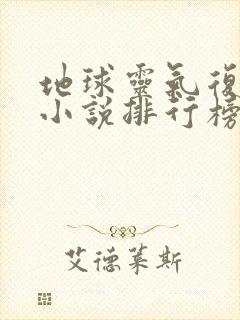 地球靈氣復
小說排行榜
艾德萊斯